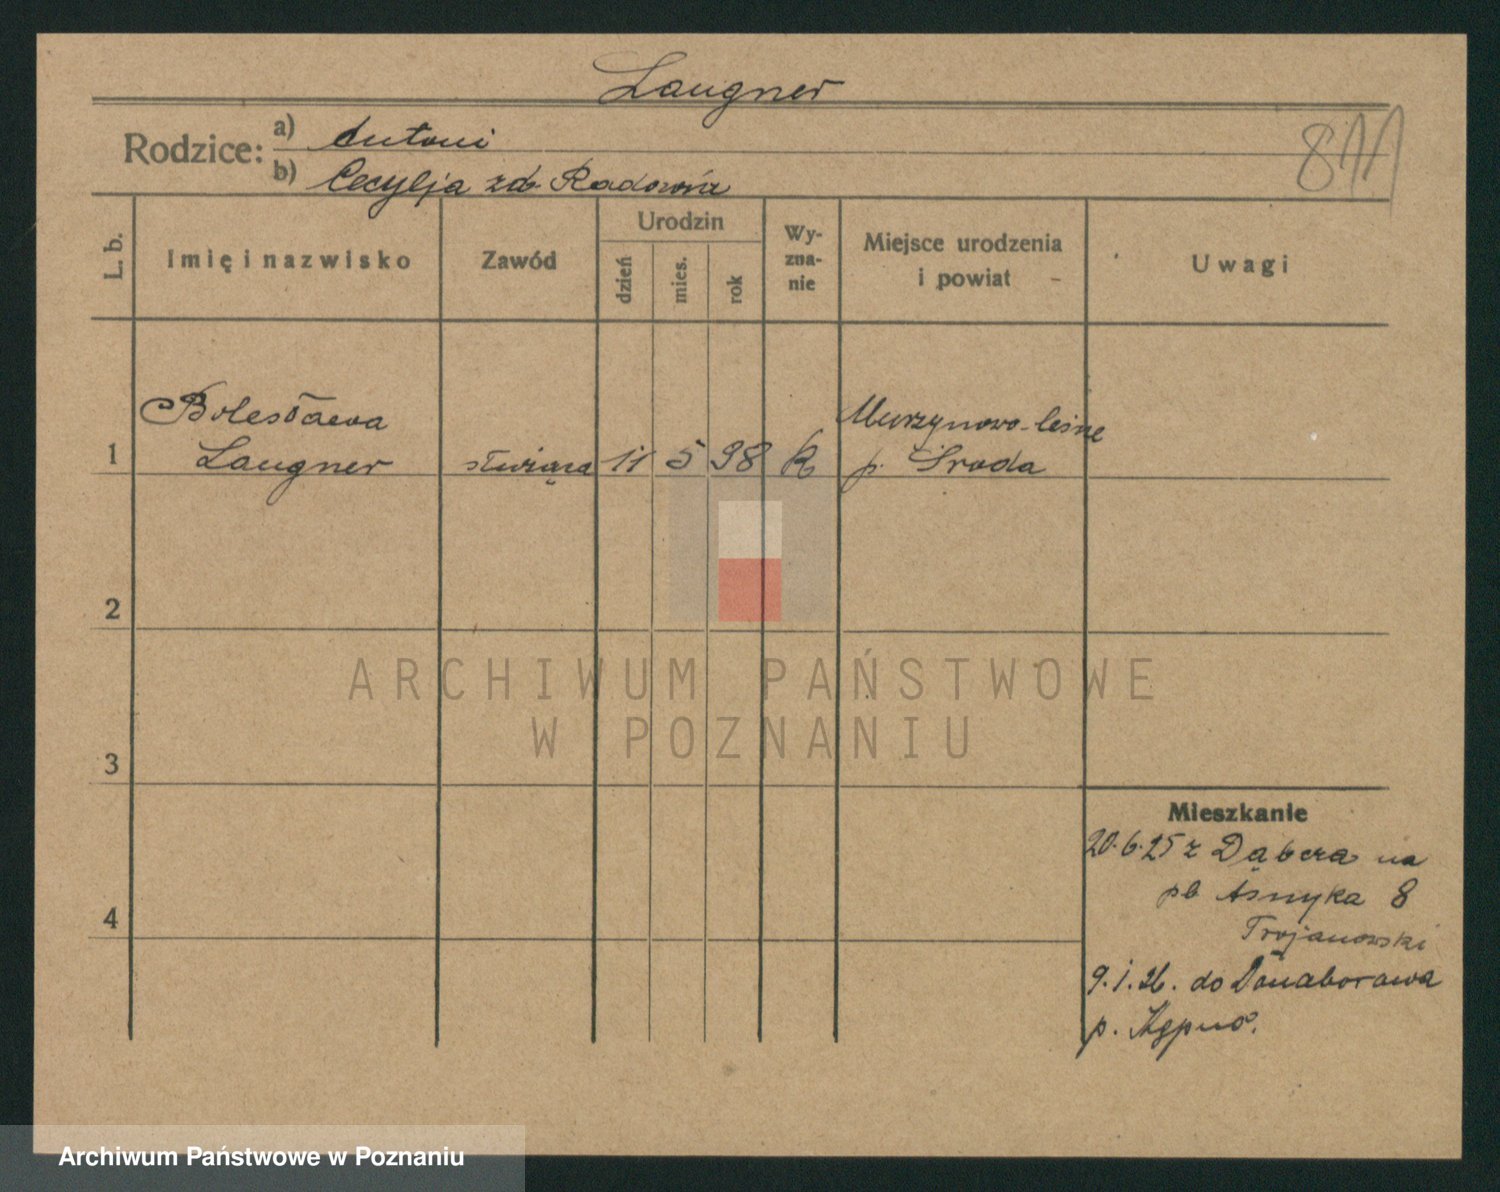 Laugner
Rodzice:
a) Antoni
b) Cecylja zd.
811
L. b.
Imię i nazwisko
Zawód
Urodzin
dzień
mies.
rok
Wy-
zna-
nie
Miejsce urodzenia
i powiat
Uwagi
Bolesława
1 Laugner służąca 11 5 98 k
Murzynowo-leśne
p. Środa
2
3
4
Mieszkanie
20.6.25 z na
pb Asnyka 8
Trojanowski
9.1.26. do Donaborowa
p. Kępno.
ARCHIWUM PAŃSTWOWE
W POZNANIU
Archiwum Państwowe w Poznaniu